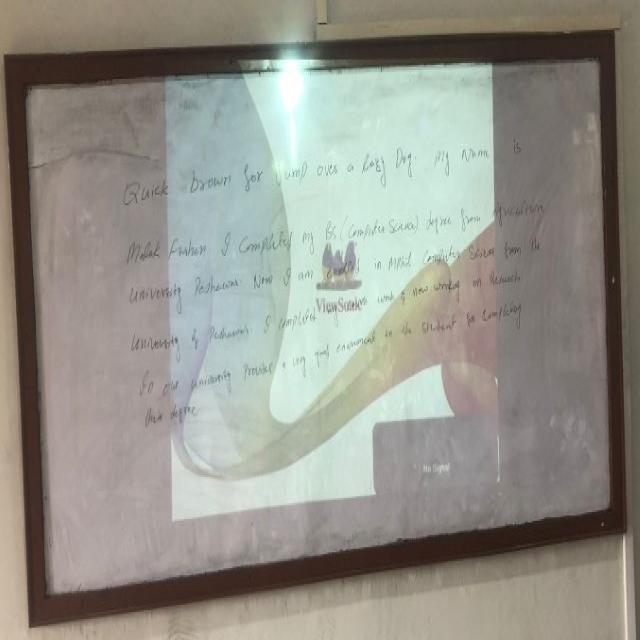 Quick brown fox Jump over a Lazy Dog. My Name is
Malak I Completed my BS (Computer Science) degree from
University Peshawar. Now I am in Mphil Computer Science from the
University of Peshawar. I completed my work & now working on Research
So our university Provides a very good enviroment to the Student for Completing
their degree
ViewSonic
No Signal